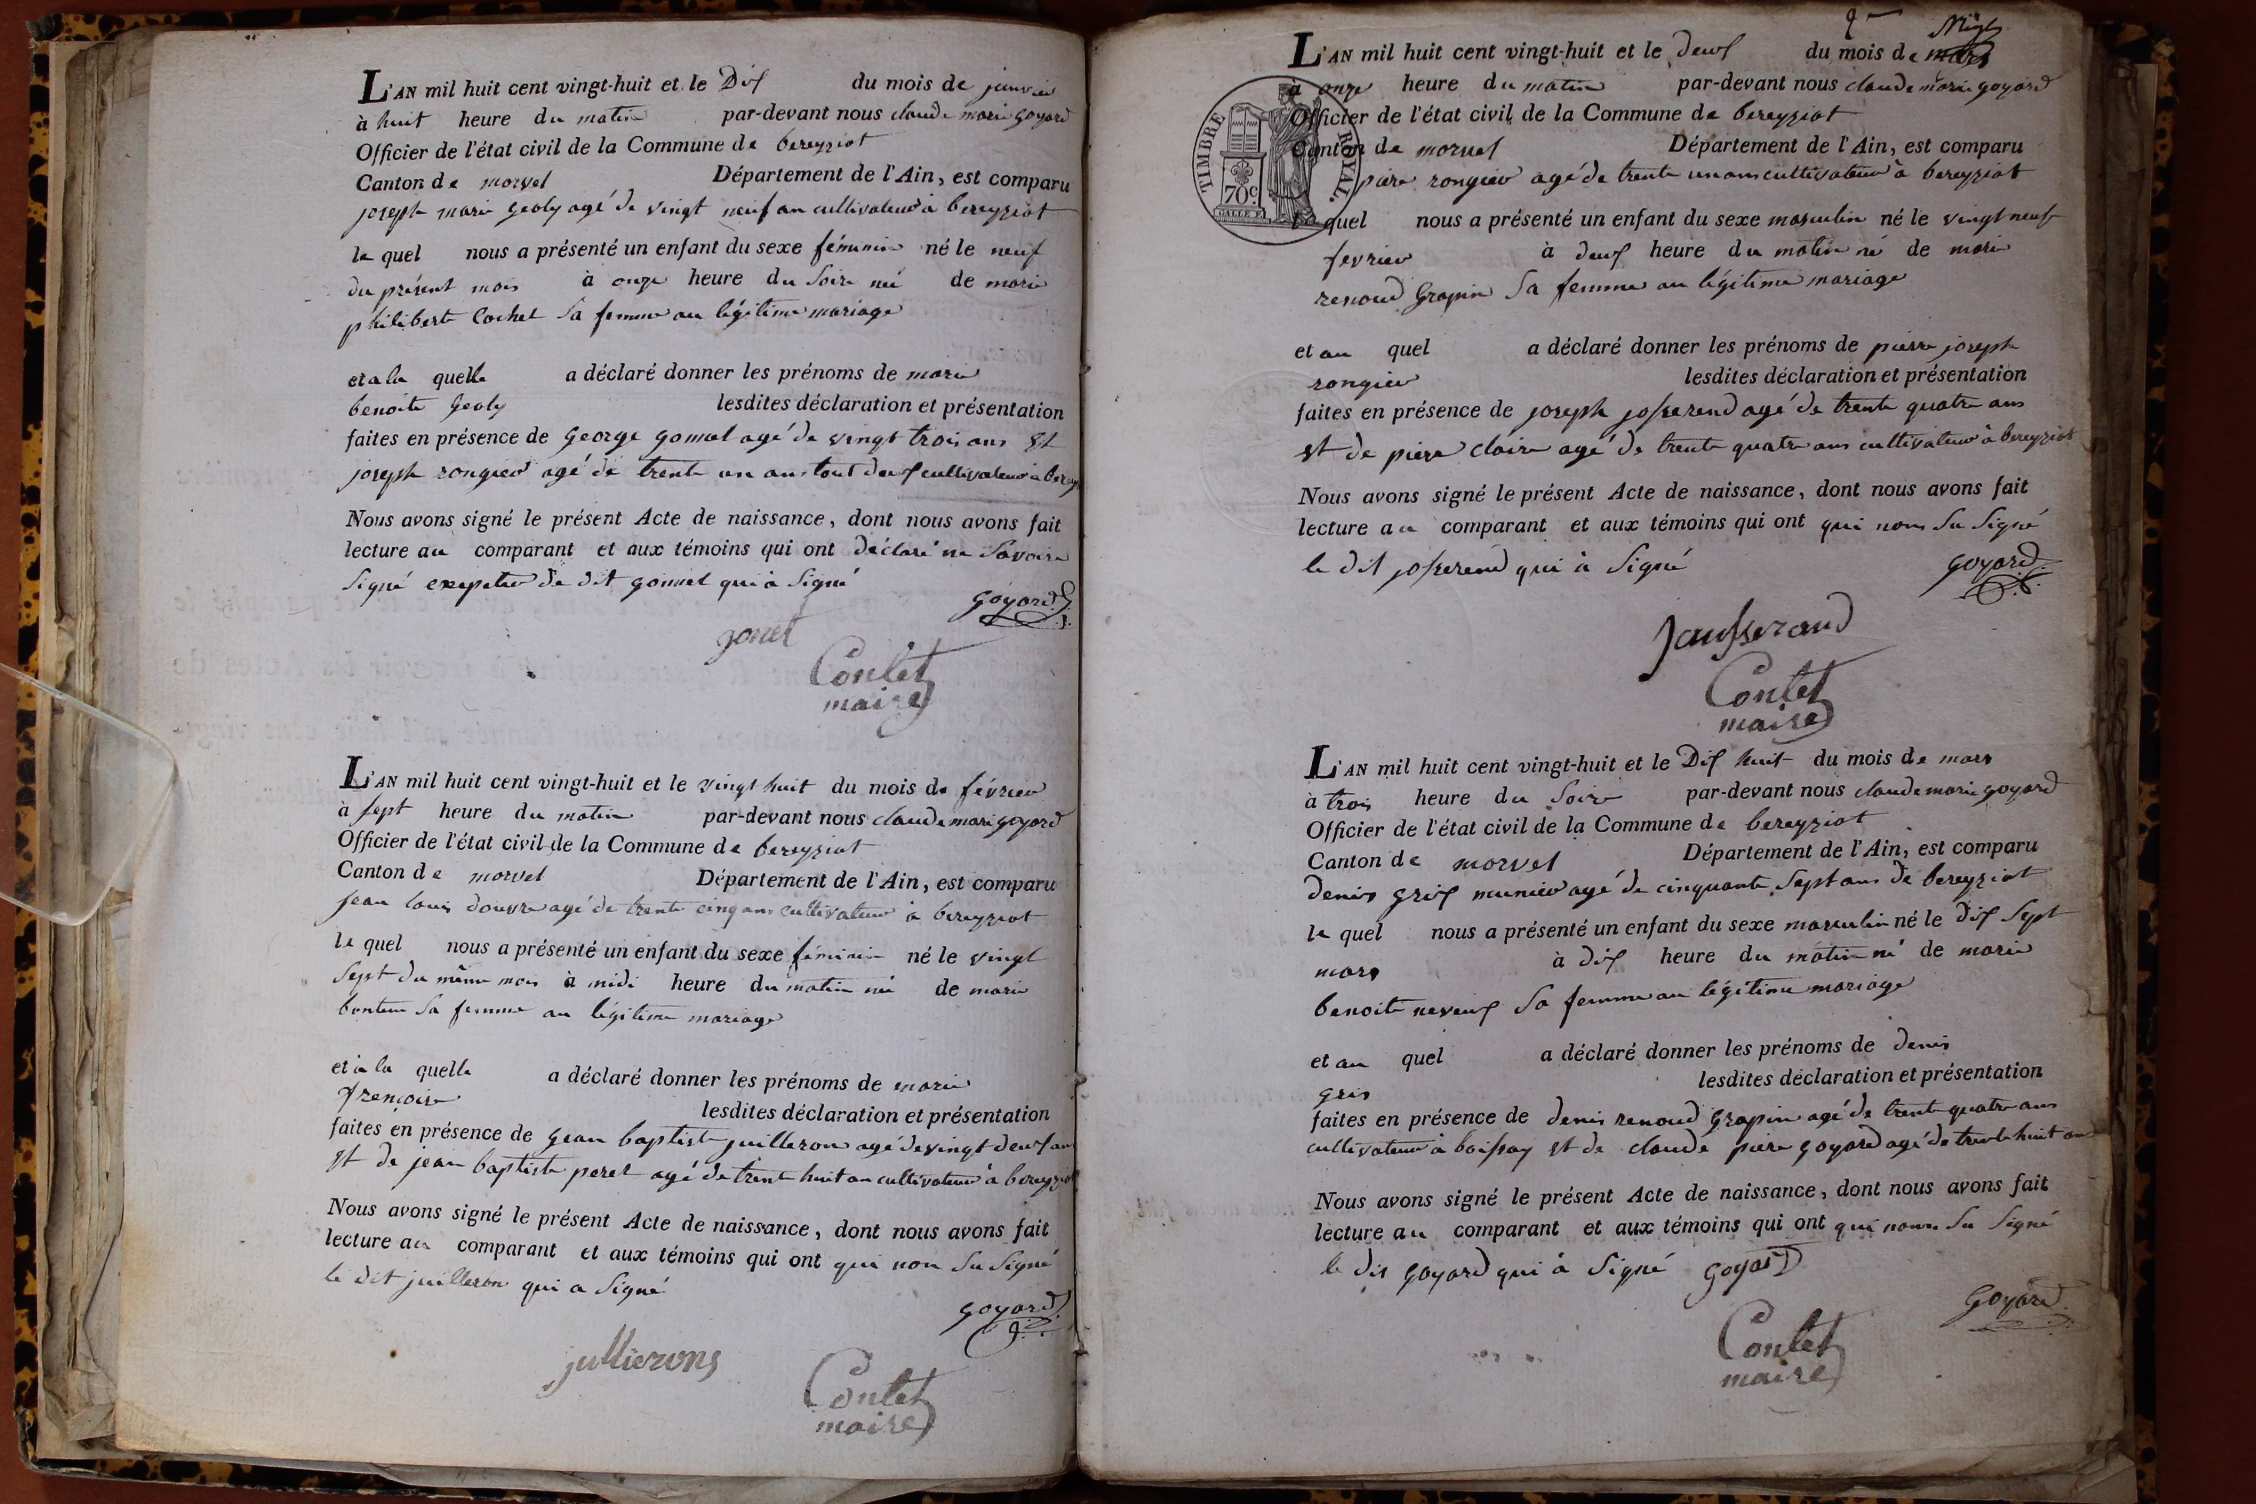 L'AN mil huit cent vingt-huit et le Dix du mois de janvier
à huit heure du matin par-devant nous claude marie goyard
Officier de l'état civil de la Commune de bereyziat
Canton de morvel Département de l'Ain, est comparu
joseph marie Geoly agé de vingt neuf an cultivateur à bereyziat
le quel nous a présenté un enfant du sexe féminin né le neuf
du présent mois à onze heure du Soire né de marie
philiberte Cochet Sa femme au légitime mariage
et a la quelle a déclaré donner les prénoms de marie
benoite Geoly lesdites déclaration et présentation
faites en présence de George gonnet agé de vingt trois ans Et
joseph rongier agé de trente un ans tout deux cultivateur à berey
Nous avons signé le présent Acte de naissance, dont nous avons fait
lecture au comparant et aux témoins qui ont déclaré ne Savoire
Signé exepeter de dit gonnet qui à Signé
goyard
gonet
Contet
maire
L'AN mil huit cent vingt-huit et le vingt huit du mois de février
à sept heure du matin par-devant nous claude mari goyard
Officier de l'état civil de la Commune de bereyziat
Canton de morvel Département de l'Ain, est comparu
jean louis douvre agé de trente cinq ans cultivateur à bereyziat
le quel nous a présenté un enfant du sexe féminin né le vingt
Sept du même mois à midi heure du matin né de marie
Sa femme au légitime mariage
et à la quelle a déclaré donner les prénoms de marie
frençoise lesdites déclaration et présentation
faites en présence de Gean baptiste juilleron agé de vingt deux ans
Et de jean baptiste peret agé de trente huit an cultivateur à bereyziat
Nous avons signé le présent Acte de naissance, dont nous avons fait
lecture au comparant et aux témoins qui ont qui non Su Signé
le dit juilleron qui a Signé
goyard
jullierons
Contet
maire
2
L'AN mil huit cent vingt-huit et le deux du mois de mars
à onze heure du matin par-devant nous claude marie goyard
Officier de l'état civil de la Commune de bereyziat
Canton de morvel Département de l'Ain, est comparu
piere rongier agé de trente un ans cultivateur à bereyziat
TIMBRE ROYAL.
70c.
le quel nous a présenté un enfant du sexe masculin né le vingt neuf
fevrier à deux heure du matin né de marie
renoud Grapin Sa femme au légitime mariage
et au quel a déclaré donner les prénoms de pierre joseph
rongier lesdites déclaration et présentation
faites en présence de joseph josserend agé de trente quatre ans
et de piere claire agé de trente quatre ans cultivateur à bereyziat
Nous avons signé le présent Acte de naissance, dont nous avons fait
lecture au comparant et aux témoins qui ont qui nons Su Signé
le dit josserend qui à Signé
goyard
jausserand
Contet
maire
L'AN mil huit cent vingt-huit et le Dix huit du mois de mars
à trois heure du Soire par-devant nous claude marie goyard
Officier de l'état civil de la Commune de bereyziat
Canton de morvel Département de l'Ain, est comparu
denis Grix munier agé de cinquante Sept ans de bereyziat
le quel nous a présenté un enfant du sexe masculin né le dix Sept
mars à dix heure du matin né de marie
benoite neveux Sa femme au légitime mariage
et au quel a déclaré donner les prénoms de denis
gris lesdites déclaration et présentation
faites en présence de denis renoud Grapin agé de trente quatre ans
cultivateur à boissay Et de claude piere goyard agé de trente huit an
Nous avons signé le présent Acte de naissance, dont nous avons fait
lecture au comparant et aux témoins qui ont qui nons Su Signé
le dis goyard qui à Signé goyard
goyard
Contet
maire